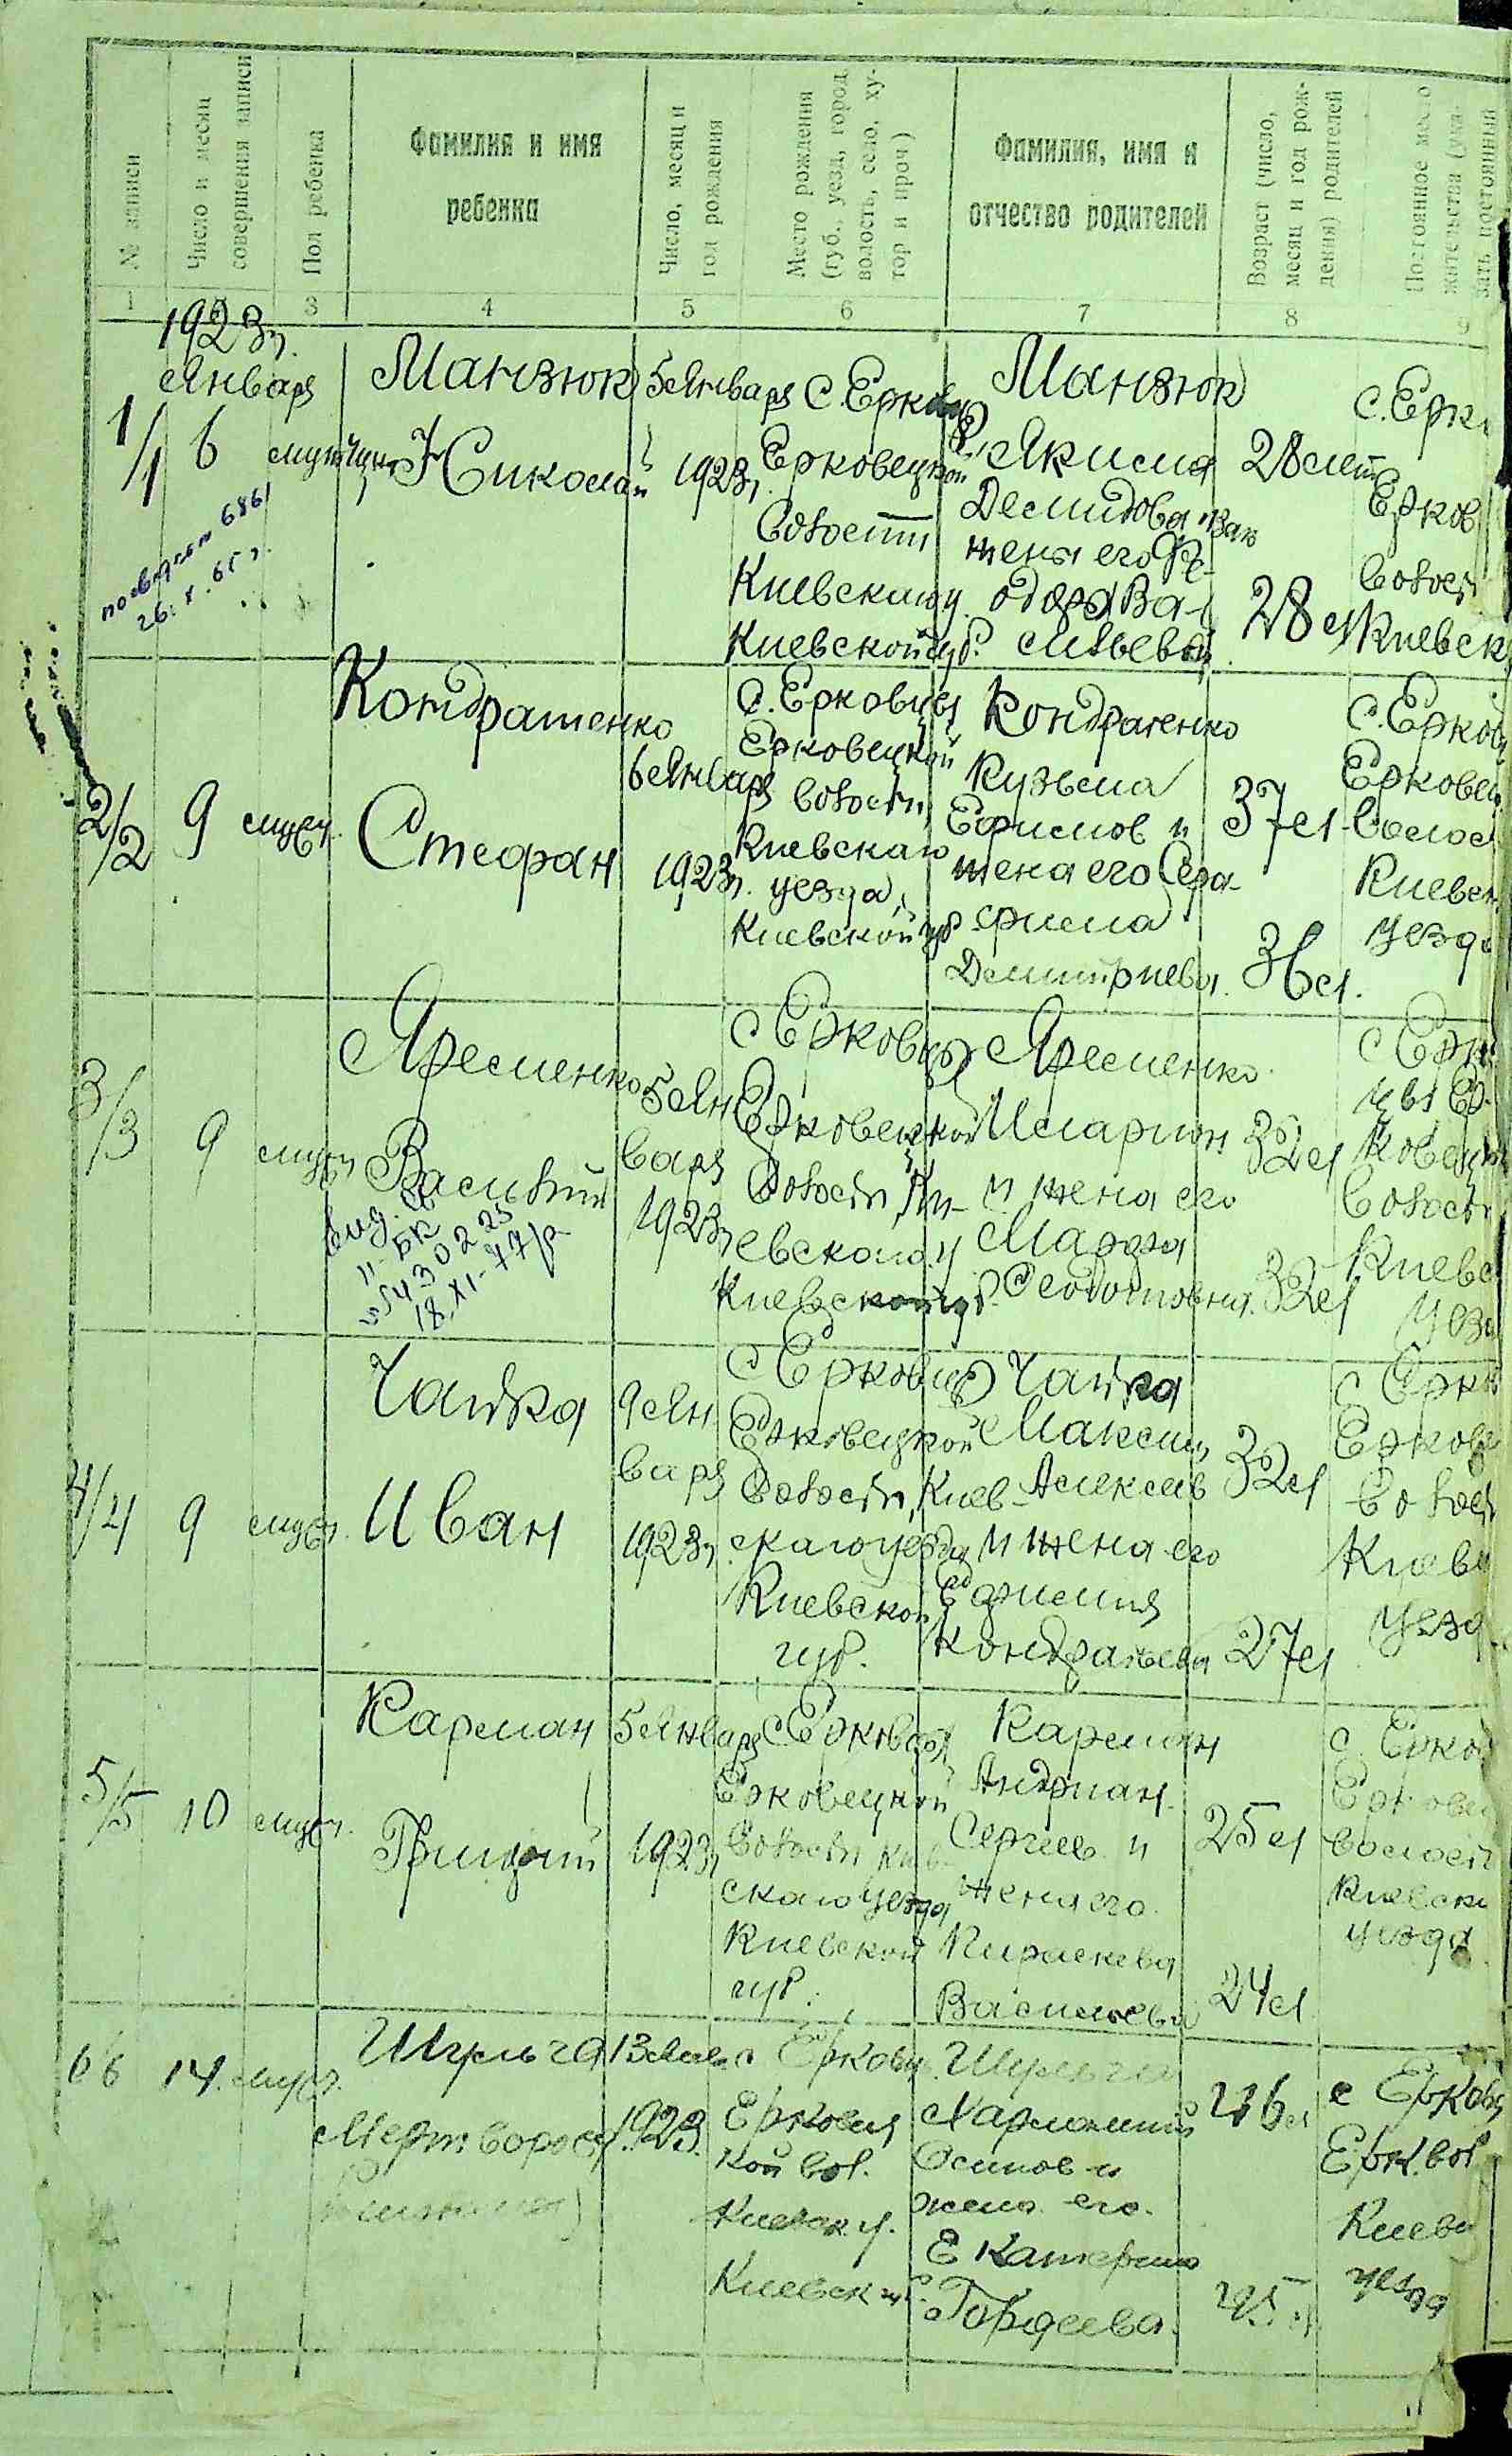 № записи
Число и месяц совершения записи
Пол ребенка
Фамилия и имя
ребенка
Число, месяц и
год рождения
Место рождения
(губ., уезд, город
волость, село, ху-
тор и проч)
Фамилия, имя и
отчество родителей
Возраст (число,
месяц и год рож-
дения) родителей
Постоянное место
жительства (ука-
зать постоянный
1
3
4
5
6
7
8
9
1923г.
Января
1/1
6
Манзюк
Николай
5 Января
1923г.
с. Ерковцы
Ерковецкой
Волости
Киевского у.
Киевской губ.
Манзюк
Якима
Демидова
жена его Фе-
одора Ва-
сильева
28 лет
28 л
с. Ерк
Ерков
Волост
Киевск
6861
26.X.65г.
2/2
9
мужч.
Кондратенко
Стефан
6 Января
1923г.
с. Ерковцы
Ерковецкой
Волости,
Киевскаго
уезда,
Киевской губ
Кондратенко
Кузьма
Ефимов и
жена его Сера-
фима
Демитриева.
37 л
36 л.
с. Ерков
Ерковец
Волос
Киевск
уезда
3/3
9
мужч
Яременко
Василий
5 Ян
варя
1923г
с Ерковцы
Ерковецкой
Волости, Ки-
евского у
Киевской губ.
Яременко
Иларион
и жена его
Марфа
Феодотовна.
32 л
32 л
с Ерк
цы Ер-
ковецк
Волост
Киевс
Уезд
выд. св
II-БК
№ 5430225
18.XI-77г
4/4
9
мужч.
Чайка
Иван
9 Ян
варя
1923г.
с Ерковцы
Ерковецкой
Волости, Киев-
скаго уезда
Киевской
губ.
Чайка
Максим
Алексеев
и жена его
Ефимия
Кондратьева
32 л
27 л
с Ерк
Ерковец
Волост
Киевс
уезд
5/5
10
мужч.
Карман
Григорий
5 Января
1923г
с Ерковцы
Ерковецкой
Волости Киев-
скаго Уезда
Киевской
губ.
Карман
Андриан
Сергеев и
жена его
Параскева
Васильева
25 л
24 л
с Ерков
Ерковец
Волост
Киевск
уезда
6 6
14.
мужч.
Шульга
Мертворожд
13 Янв.
1923.
с Ерковц.
Ерковец
кой вол.
Киевск у.
Киевск губ.
Шульга
Харлампий
Осипов и
жена его.
Екатерина
Гордеева.
26 л
25 л
с Ерковц
Ерк. вол
Киевск
уезда